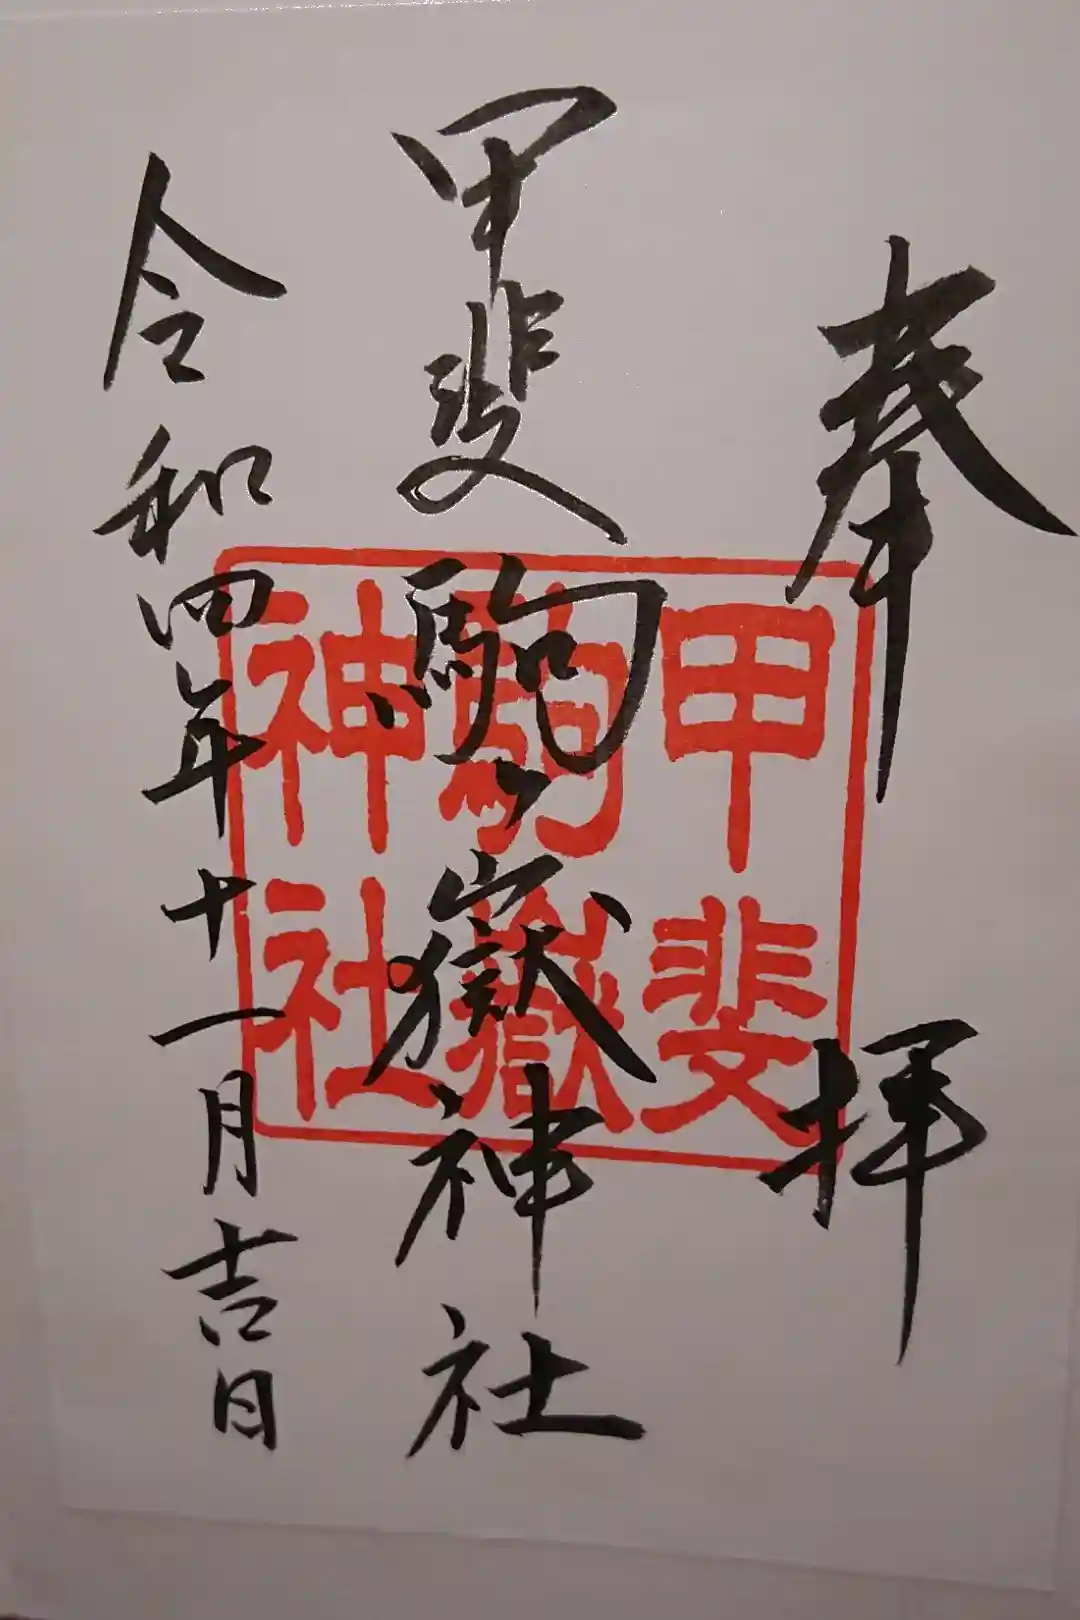 奉拝
甲斐駒ヶ嶽神社
令和四年十一月吉日
甲斐
駒嶽
神社